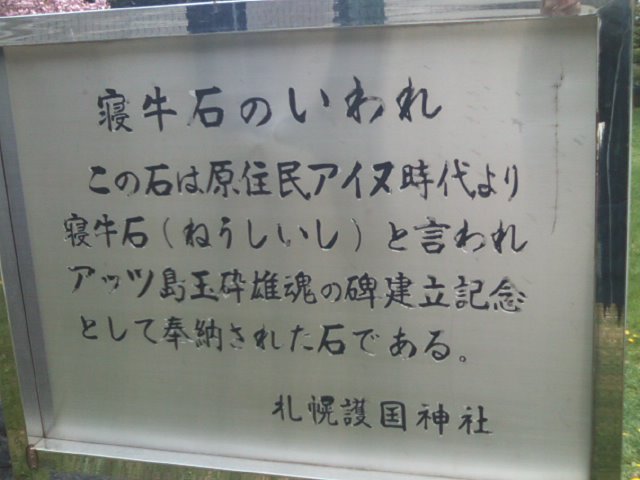 寝牛石のいわれ
この石は原住民アイヌ時代より
寝牛石(ねうしいし)と言われ
アッツ島玉砕雄魂の碑建立記念
として奉納された石である。
札幌護国神社